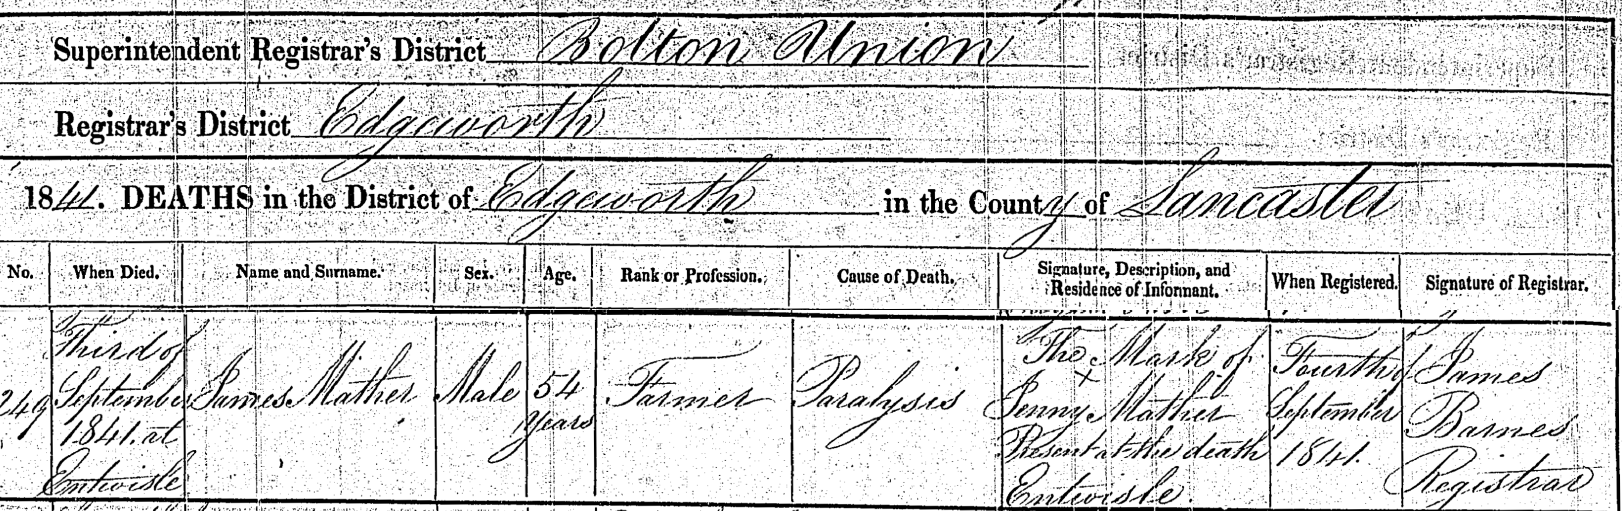 Superintendent Registrar's District Bolton Union
Registrar's District Edgeworth
1841. DEATHS in the District of Edgeworth in the County of Lancaster
No. When Died. Name and Surname. Sex. Age. Rank or Profession. Cause of Death. Signature, Description, and Residence of Informant. When Registered. Signature of Registrar.
249
Third of
September
1841. at
Entwisle
James Mather
Male
54
years
Farmer
Paralysis
The x Mark of
Jenny Mather
Present at the death
Entwisle.
Fourth of
September
1841.
James
Barnes
Registrar